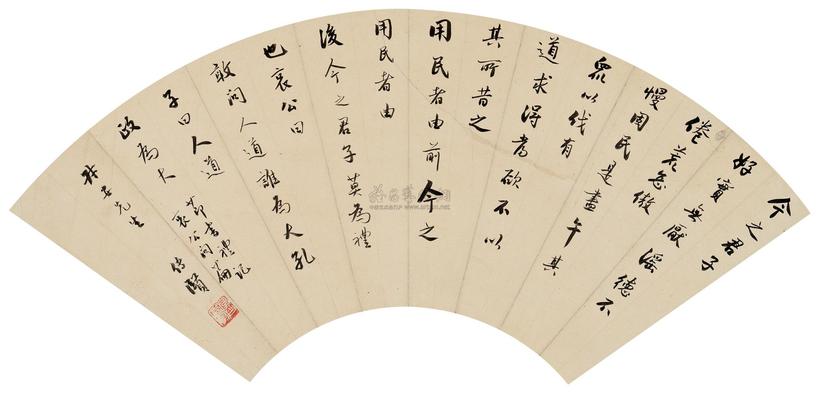 今之君子
好實無厭淫德不
倦荒怠傲
慢固民是盡午其
眾以伐有
道求得當欲不以
其所昔之
用民者由前今之
用民者由
後今之君子莫為禮
也哀公曰
敢問人道誰為大孔
子曰人道
政為大
節書禮記
哀公問篇
先生
傅賢